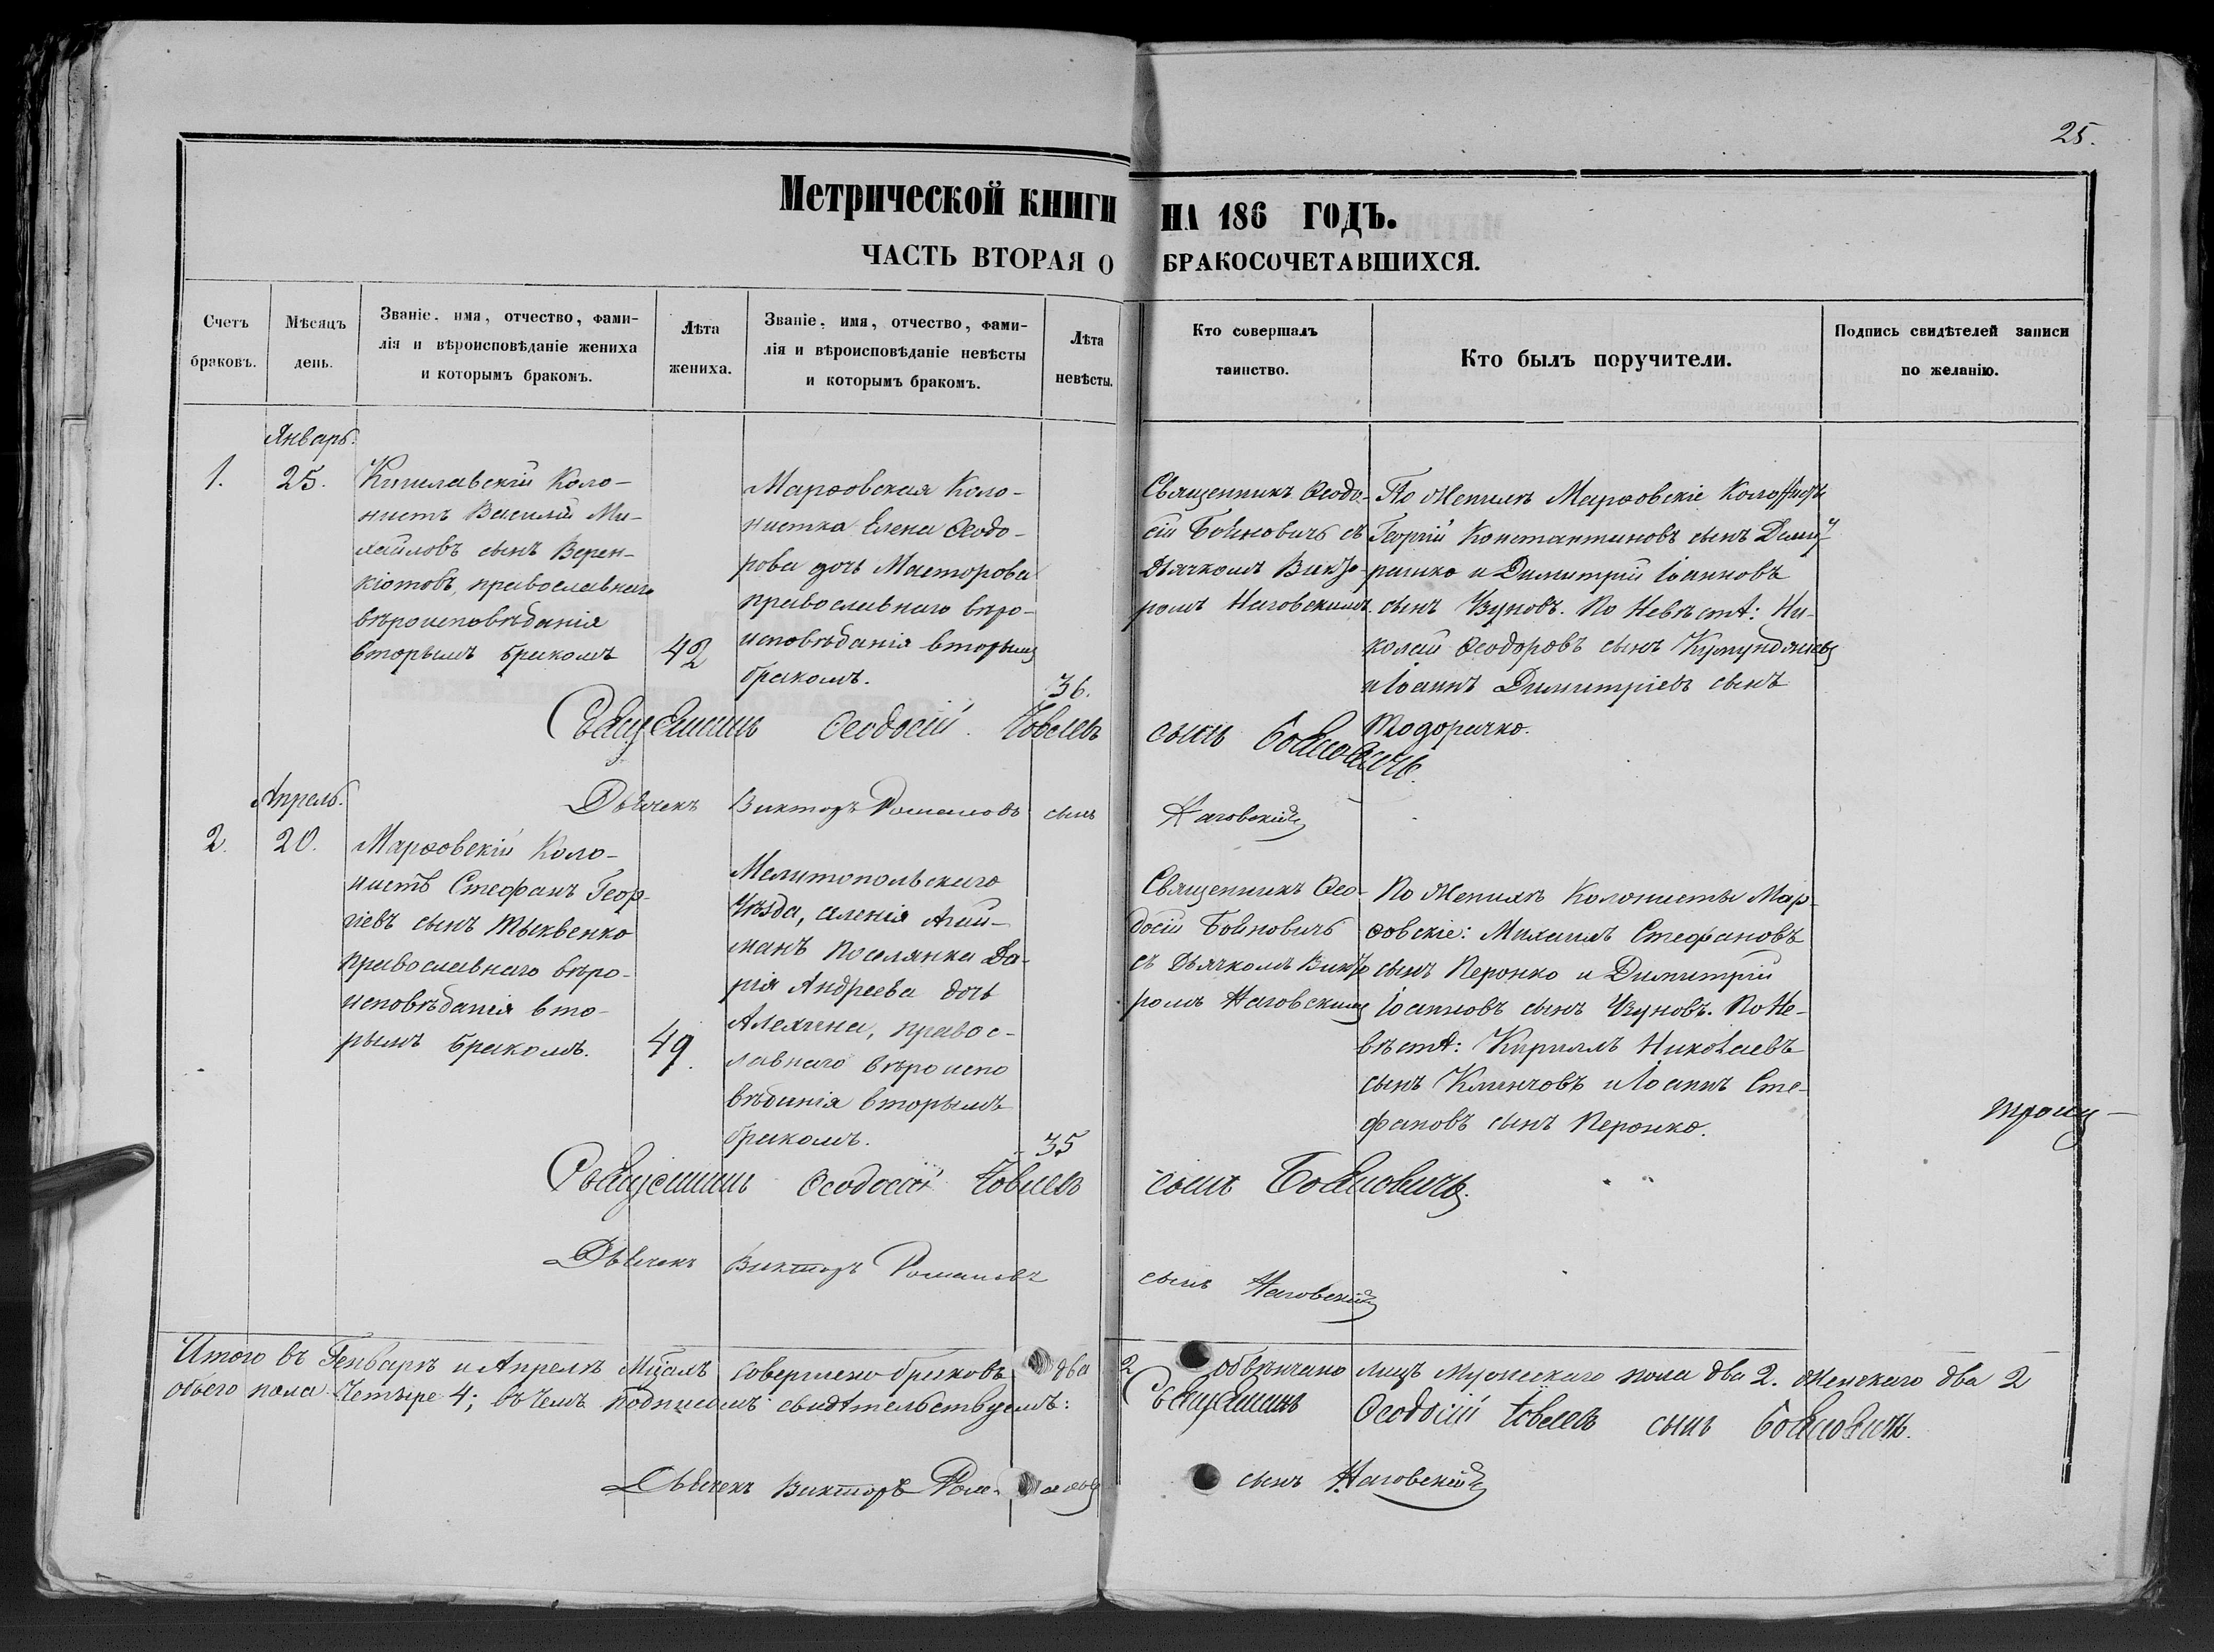 25.
Метрической книги на 186 годъ.
часть вторая о бракосочетавшихся.
Счетъ браковъ.
Мѣсяцъ день.
Званіе, имя, отчество, фами-
лія и вѣроисповѣданіе жениха
и которымъ бракомъ.
Лѣта жениха.
Званіе, имя, отчество, фами-
лія и вѣроисповѣданіе невѣсты
и которымъ бракомъ.
Лѣта невѣсты.
Кто совершалъ
таинство.
Кто былъ поручители.
Подпись свидѣтелей записи
по желанію.
Январь.
1.
25.
Кишлавскій Коло-
нистъ Василій Ми-
хайловъ сынъ Верен-
кіотовъ, православнаго
вѣроисповѣданія
вторымъ бракомъ
42
Марѳовская Коло-
нистка Елена Ѳеодо-
рова дочь Масторова
православнаго вѣро-
исповѣданія вторымъ
бракомъ.
36.
Священникъ Ѳеодо-
сій Бойновичъ съ
Дьячкомъ Викто-
ромъ Наговскимъ.
По Женихѣ Марѳовскіе Колонисты
Георгій Константиновъ сынъ
и Димитрій Іоанновъ
сынъ Узуновъ. По Невѣстѣ: Ни-
колай Ѳеодоровъ сынъ
и Іоаннъ Димитріевъ сынъ
Тодорачко.
Священникъ Ѳеодосій Іовлевъ сынъ Бойновичъ.
Дьячекъ Викторъ Романовъ сынъ Наговскій
Апрель.
2.
20.
Марѳовскій Коло-
нистъ Стефанъ Геор-
гіевъ сынъ Тыквенко
православнаго вѣро-
исповѣданія вто-
рымъ бракомъ.
49.
Мелитопольскаго
Уѣзда, селенія Агай-
манъ поселянка Да-
рія Андреева дочь
Алехина, правос-
лавнаго вѣроиспо
вѣданія вторымъ
бракомъ.
35
Священникъ Ѳео-
досій Бойновичъ
съ Дьячкомъ Викто
ромъ Наговскимъ
По Женихѣ Колонисты Мар-
ѳовскіе: Михаилъ Стефановъ
сынъ Перонко и Димитрій
Іоанновъ сынъ Узуновъ. По Не-
вѣстѣ: Кириллъ Николаевъ
сынъ Климчовъ и Іоаннъ Сте-
фановъ сынъ Перонко.
Священникъ Ѳеодосій Іовлевъ сынъ Бойновичъ.
Дьячекъ Викторъ Романовъ сынъ Наговскій
Итого въ Генварѣ и Апрелѣ Мцахъ совершено браковъ два 2 обвѣнчано лицъ мужескаго пола два 2. женскаго два 2
обоего пола Четыре 4; въ чемъ подписомъ свидѣтельствуемъ: Священникъ Ѳеодосій Іовлевъ сынъ Бойновичъ.
Дьячекъ Викторъ Романовъ сынъ Наговскій